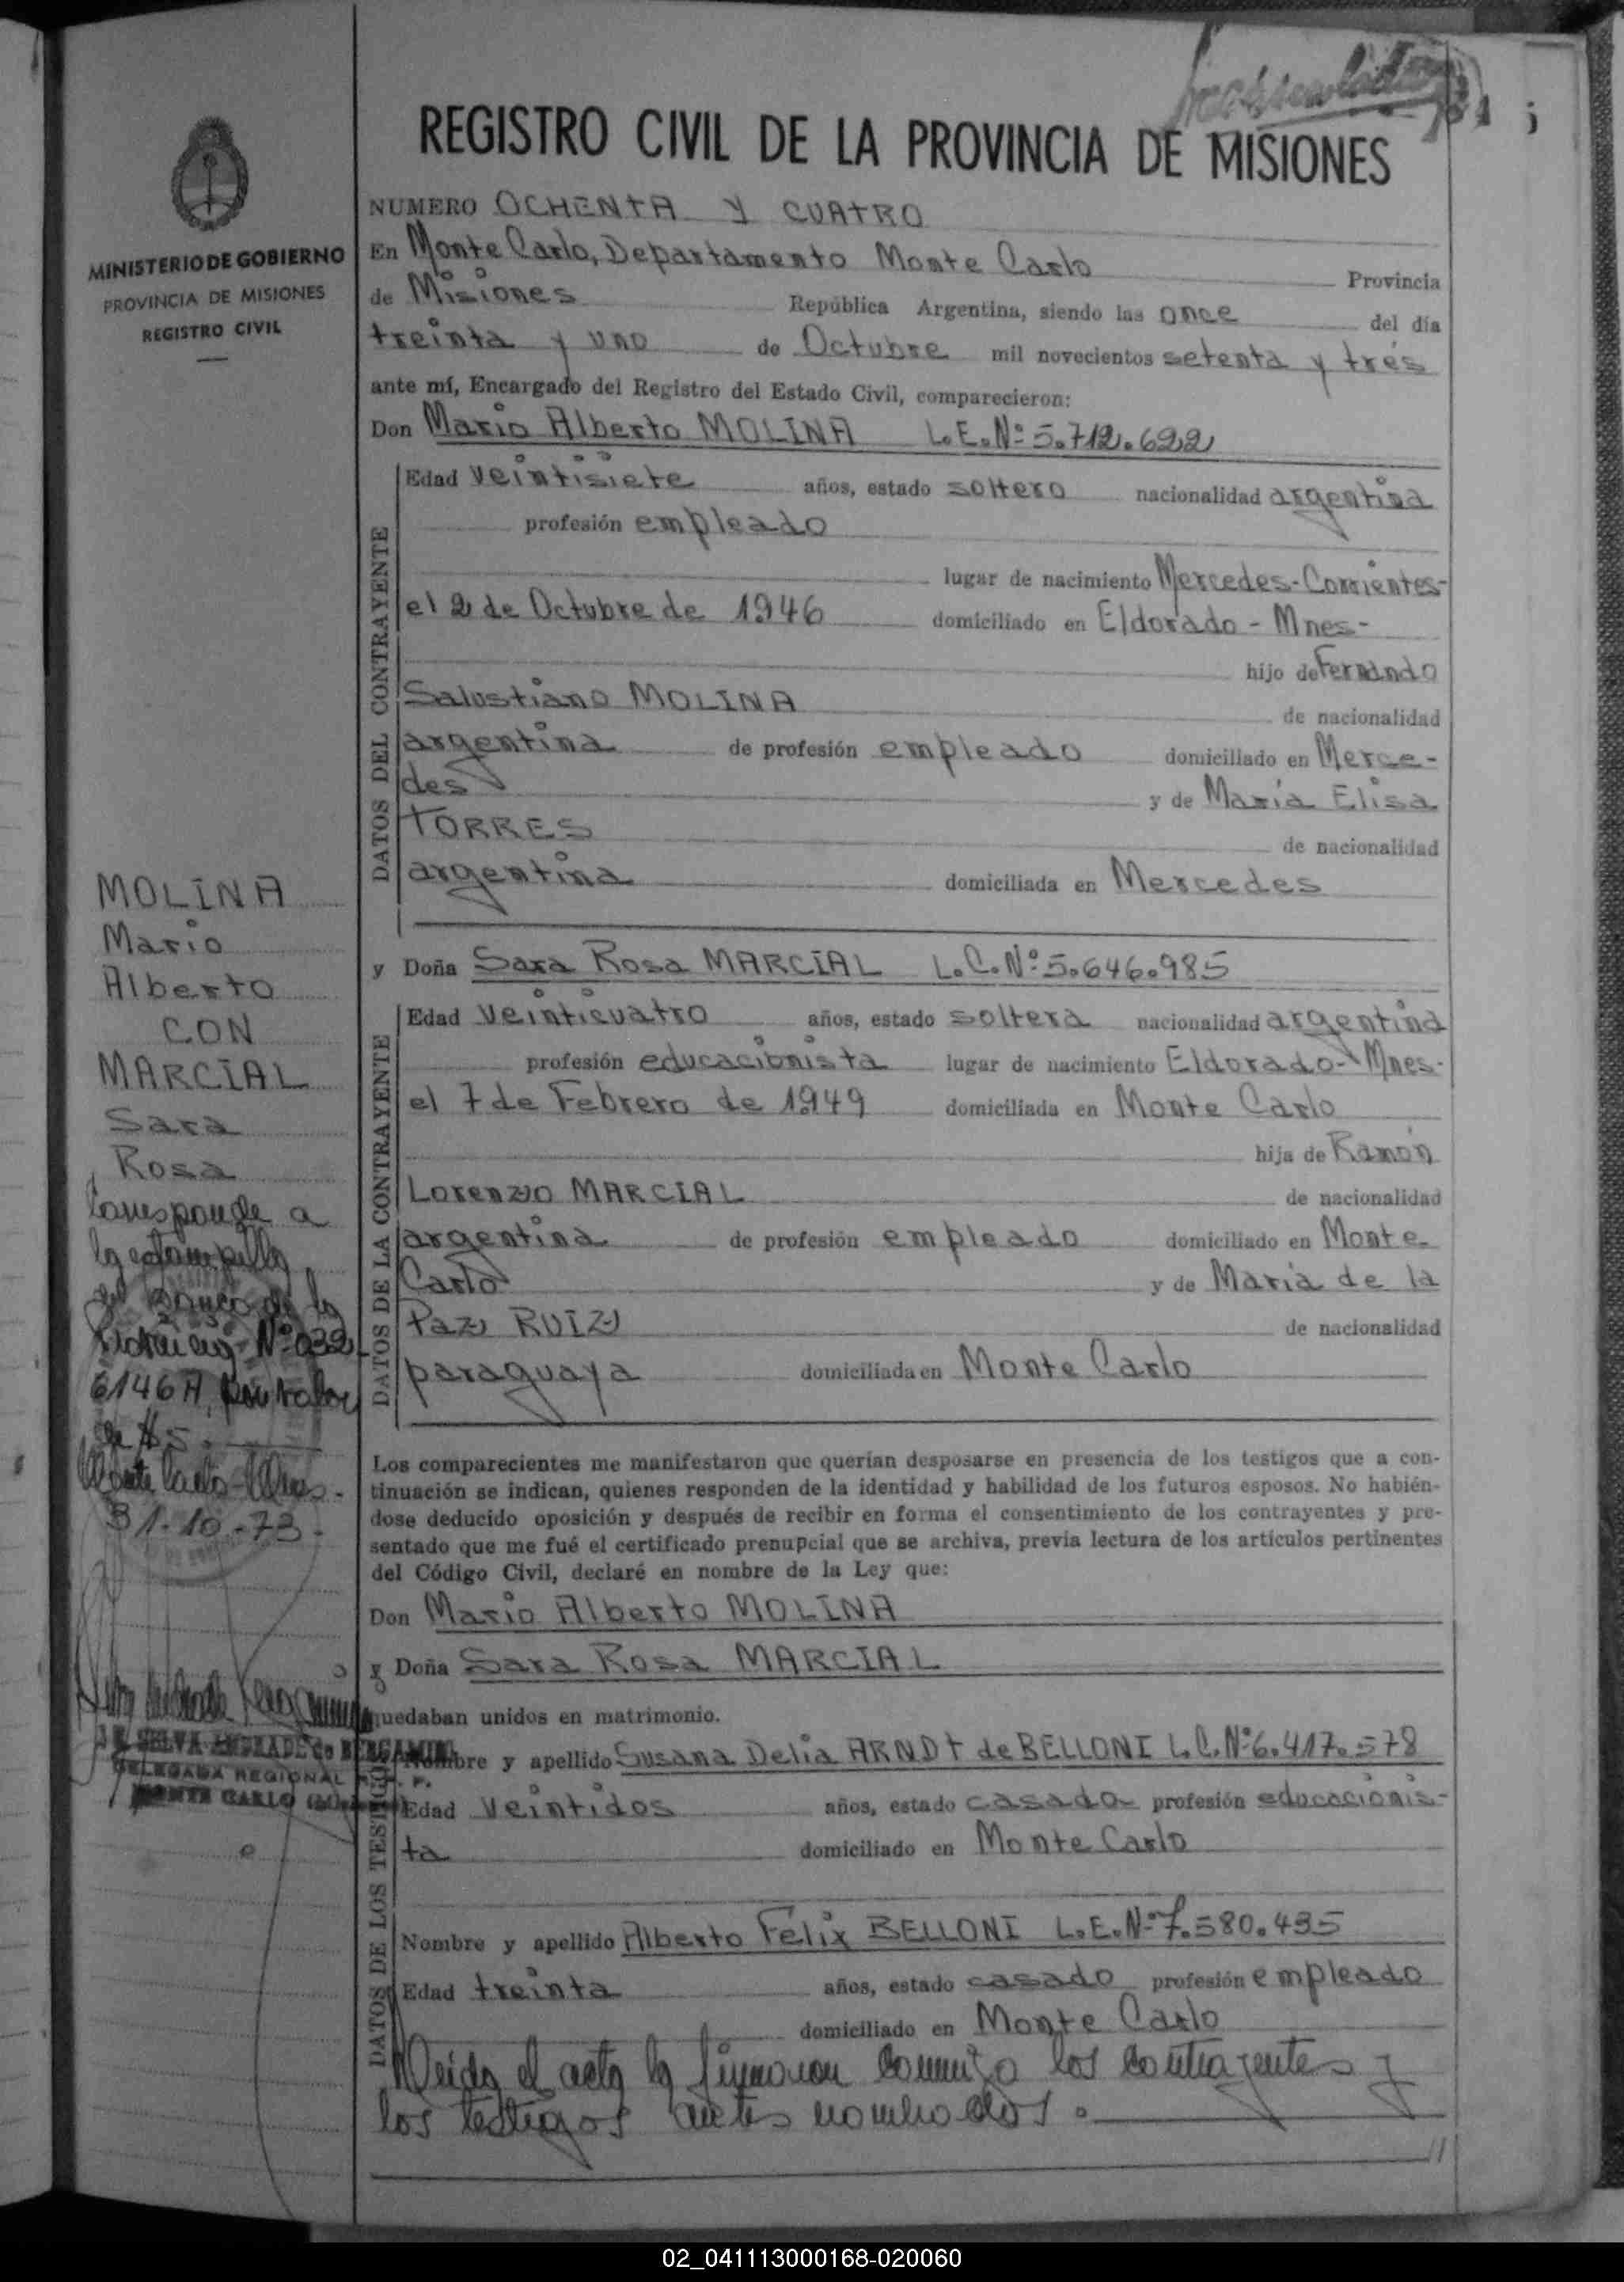 REGISTRO CIVIL DE LA PROVINCIA DE MISIONES
MINISTERIO DE GOBIERNO
PROVINCIA DE MISIONES
REGISTRO CIVIL
NUMERO OCHENTA Y CUATRO
En Monte Carlo, Departamento Monte Carlo Provincia
de Misiones República Argentina, siendo las once del día
treinta y uno de Octubre mil novecientos setenta y trés
ante mí, Encargado del Registro del Estado Civil, comparecieron:
Don Mario Alberto MOLINA L.E.Nº 5.712.622
DATOS DEL CONTRAYENTE
Edad veintisiete años, estado soltero nacionalidad argentina
profesión empleado
lugar de nacimiento Mercedes-Corrientes-
el 2 de Octubre de 1946 domiciliado en Eldorado - Mnes-
hijo de Fernando
Salustiano MOLINA de nacionalidad
argentina de profesión empleado domiciliado en Merce-
des y de María Elisa
TORRES de nacionalidad
argentina domiciliada en Mercedes
MOLINA
Mario
Alberto
CON
MARCIAL
Sara
Rosa
Corresponde a
la estampilla
del Banco de la
Provincia Nº 032
6146 A por valor
de $5.
Monte Carlo-Mnes-
31-10-73-
y Doña Sara Rosa MARCIAL L.C.Nº 5.646.985
DATOS DE LA CONTRAYENTE
Edad veinticuatro años, estado soltera nacionalidad argentina
profesión educacionista lugar de nacimiento Eldorado-Mnes-
el 7 de Febrero de 1949 domiciliada en Monte Carlo
hija de Ramón
Lorenzo MARCIAL de nacionalidad
argentina de profesión empleado domiciliado en Monte
Carlo y de María de la
Paz RUIZ de nacionalidad
paraguaya domiciliada en Monte Carlo
Los comparecientes me manifestaron que querían desposarse en presencia de los testigos que a con-
tinuación se indican, quienes responden de la identidad y habilidad de los futuros esposos. No habién-
dose deducido oposición y después de recibir en forma el consentimiento de los contrayentes y pre-
sentado que me fué el certificado prenupcial que se archiva, previa lectura de los artículos pertinentes
del Código Civil, declaré en nombre de la Ley que:
Don Mario Alberto MOLINA
y Doña Sara Rosa MARCIAL
quedaban unidos en matrimonio.
SELVA ANDRADE de BERGAMIN
DELEGADA REGIONAL R. P.
MONTE CARLO
DATOS DE LOS TESTIGOS
Nombre y apellido Susana Delia ARNDT de BELLONI L.C.Nº 6.417.578
Edad veintidos años, estado casada profesión educacionis-
ta domiciliado en Monte Carlo
Nombre y apellido Alberto Félix BELLONI L.E.Nº 7.580.435
Edad treinta años, estado casado profesión empleado
domiciliado en Monte Carlo
Leída el acta la firmaron conmigo los contrayentes y
los testigos antes nombrados.
02_041113000168-020060